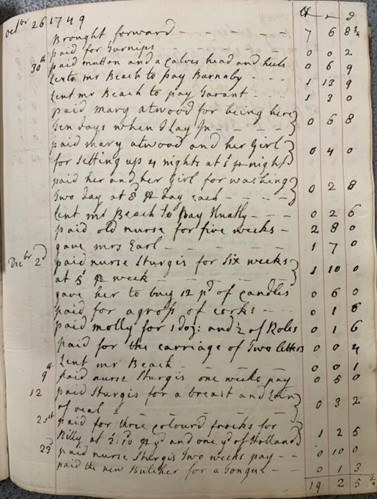 Octbr 26 1749 £ s d
Brought forward 7 6 8½
paid for turneps 0 0 2
30th paid mutton and a calves head and heels 0 6 9
Lent mr Beach to pay Barnaby 1 13 9
Lent mr Beach to pay Garant 1 3 0
paid mary atwood for being here
Ten days when I lay In 0 6 8
paid mary atwood and her Girl
for setting up 4 nights at 1s 4 night 0 4 0
paid her and her Girl for washing
Two day at 8d pr day each 0 2 8
Lent mr Beach to Pay 0 2 6
paid old nurse for five weeks 2 8 0
gave mrs Earl 1 7 0
Decbr 2d paid nurse Sturgis for Six weeks
at 5s pr week 1 10 0
gave her to buy 12 pd of candles 0 6 0
paid for a gross of corks 0 1 6
paid molly for 1 doz: and ½ of Roles 0 1 6
paid for the carriage of Two letters 0 0 4
Lent mr Beach 0 0 1
9th paid nurse Sturgis one weeks pay 0 5 0
12 paid Sturgis for a breast and
of veal 0 3 2
for three coloured frocks for
Billy at 2:10 pr yd and one yd of Holland 1 2 5
23d paid nurse Sturgis Two weeks pay 0 10 0
paid the new Butcher for a Tongue 0 1 3
19 2 5